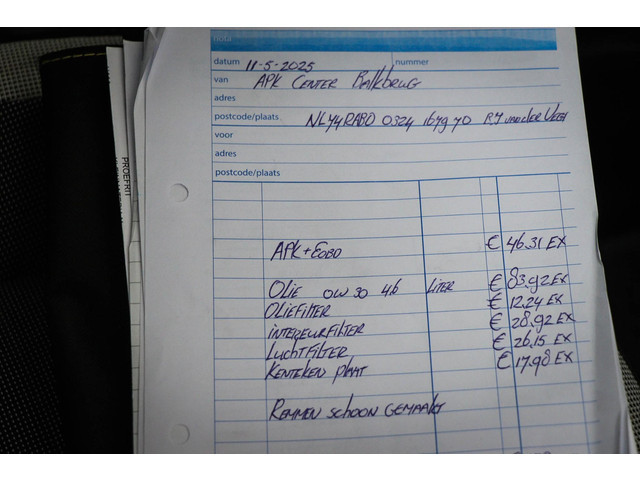 nota
datum 11-5-2025 nummer
van APK CENTER Balkbrug
adres
postcode/plaats NL44RABO 0324 1679 70 RJ van der Veen
voor
adres
postcode/plaats
APK + EOBD € 46.31 EX
OLIE 0W30 4.6 LITER € 83.92 EX
OLIEFILTER € 12.24 EX
INTERIEURFILTER € 28.92 EX
LUCHTFILTER € 26.15 EX
KENTEKEN PLAAT € 17.98 EX
REMMEN SCHOON GEMAAKT
PROEFRIT